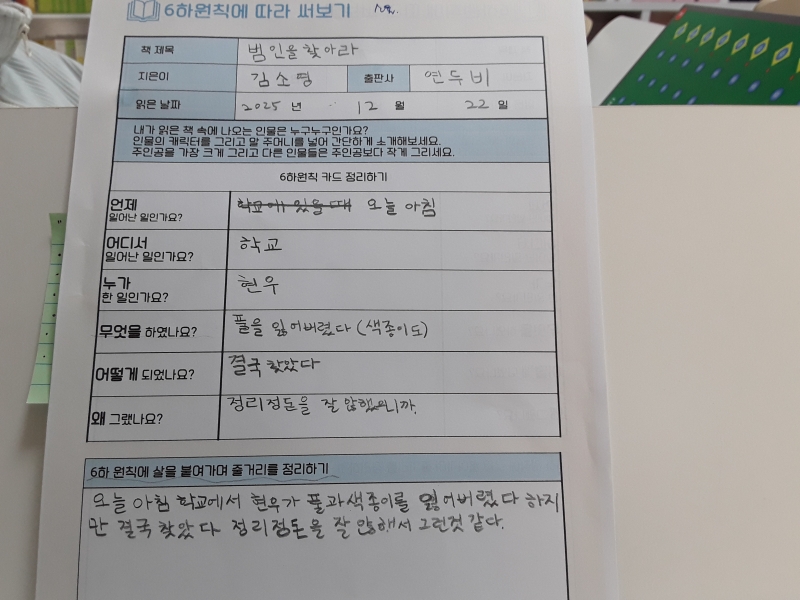 6하원칙에 따라 써보기
책 제목 범인을 찾아라
지은이 김소명 출판사 연두비
읽은 날짜 2025 년 12 월 22 일
내가 읽은 책 속에 나오는 인물은 누구누구인가요?
인물의 캐릭터를 그리고 말 주머니를 넣어 간단하게 소개해보세요.
주인공을 가장 크게 그리고 다른 인물들은 주인공보다 작게 그리세요.
6하원칙 카드 정리하기
언제 학교에 있을때 오늘 아침
일어난 일인가요?
어디서 학교
일어난 일인가요?
누가 현우
한 일인가요?
무엇을 하였나요? 풀을 잃어버렸다 (색종이도)
어떻게 되었나요? 결국 찾았다
왜 그랬나요? 정리정돈을 잘 않했으니까.
6하 원칙에 살을 붙여가며 줄거리를 정리하기
오늘 아침 학교에서 현우가 풀과색종이를 잃어버렸다 하지
만 결국 찾았다 정리정돈을 잘 않해서 그런것 같다.